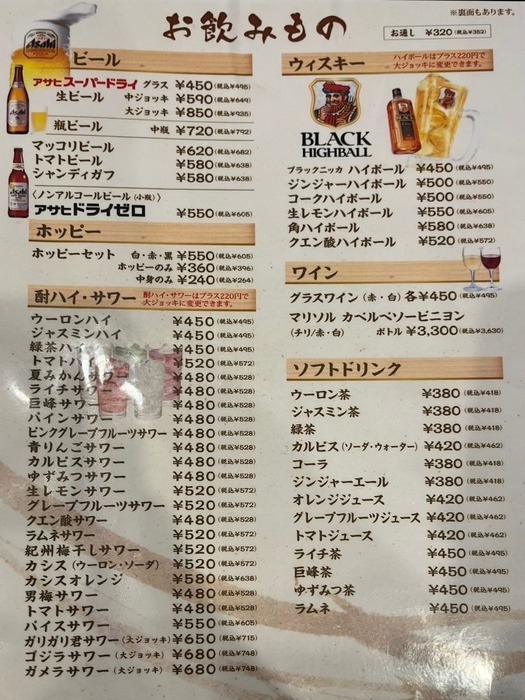 お飲みもの
※裏面もあります。
お通し ¥320(税込¥352)
Asahi
ビール
アサヒスーパードライ グラス ¥450(税込¥495)
生ビール 中ジョッキ ¥590(税込¥649)
大ジョッキ ¥850(税込¥935)
瓶ビール 中瓶 ¥720(税込¥792)
マッコリビール ¥620(税込¥682)
トマトビール ¥580(税込¥638)
シャンディガフ ¥580(税込¥638)
〈ノンアルコールビール(小瓶)〉
アサヒドライゼロ ¥550(税込¥605)
ホッピー
ホッピーセット 白・赤・黒 ¥550(税込¥605)
ホッピーのみ ¥360(税込¥396)
中身のみ ¥240(税込¥264)
酎ハイ・サワー
酎ハイ・サワーはプラス220円で
大ジョッキに変更できます。
ウーロンハイ ¥450(税込¥495)
ジャスミンハイ ¥450(税込¥495)
緑茶ハイ ¥450(税込¥495)
トマトハイ ¥480(税込¥528)
夏みかんサワー ¥480(税込¥528)
ライチサワー ¥480(税込¥528)
巨峰サワー ¥480(税込¥528)
パインサワー ¥480(税込¥528)
ピンクグレープフルーツサワー ¥480(税込¥528)
青りんごサワー ¥480(税込¥528)
カルピスサワー ¥480(税込¥528)
ゆずみつサワー ¥480(税込¥528)
生レモンサワー ¥520(税込¥572)
グレープフルーツサワー ¥520(税込¥572)
クエン酸サワー ¥480(税込¥528)
ラムネサワー ¥520(税込¥572)
紀州梅干しサワー ¥520(税込¥572)
カシス(ウーロン・ソーダ) ¥520(税込¥572)
カシスオレンジ ¥580(税込¥638)
男梅サワー ¥480(税込¥528)
トマトサワー ¥480(税込¥528)
バイスサワー ¥550(税込¥605)
ガリガリ君サワー(大ジョッキ) ¥650(税込¥715)
ゴジラサワー(大ジョッキ) ¥680(税込¥748)
ガメラサワー(大ジョッキ) ¥680(税込¥748)
ウィスキー
ハイボールはプラス220円で
大ジョッキに変更できます。
BLACK
HIGHBALL
ブラックニッカ ハイボール ¥450(税込¥495)
ジンジャーハイボール ¥500(税込¥550)
コークハイボール ¥500(税込¥550)
生レモンハイボール ¥550(税込¥605)
角ハイボール ¥580(税込¥638)
クエン酸ハイボール ¥520(税込¥572)
ワイン
グラスワイン(赤・白)各¥450(税込¥495)
マリソル カベルベソービニヨン
(チリ/赤・白) ボトル ¥3,300(税込¥3,630)
ソフトドリンク
ウーロン茶 ¥380(税込¥418)
ジャスミン茶 ¥380(税込¥418)
緑茶 ¥380(税込¥418)
カルピス(ソーダ・ウォーター) ¥420(税込¥462)
コーラ ¥380(税込¥418)
ジンジャーエール ¥380(税込¥418)
オレンジジュース ¥420(税込¥462)
グレープフルーツジュース ¥420(税込¥462)
トマトジュース ¥420(税込¥462)
ライチ茶 ¥450(税込¥495)
巨峰茶 ¥450(税込¥495)
ゆずみつ茶 ¥450(税込¥495)
ラムネ ¥450(税込¥495)